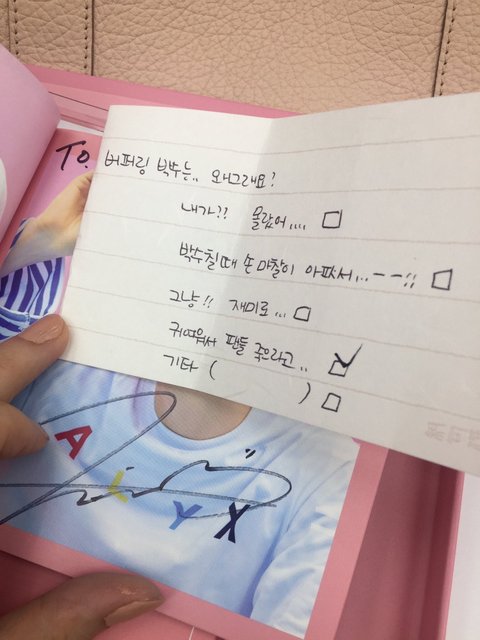 TO.
버퍼링 박수는.. 왜그래요?
내가?? 몰랐어.... □
박수칠때 손 마찰이 아파서...ㅡㅡ;; □
그냥!! 재미로... □
귀여워서 팬들 죽으라고.. ☑
기타 ( ) □
A
Y
X